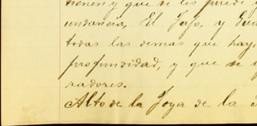 tienen y que se les puede
undancia, El Jefe, y
tidas las demas que hay
profundidad, y que se
radores.
Alto de la Joya de la